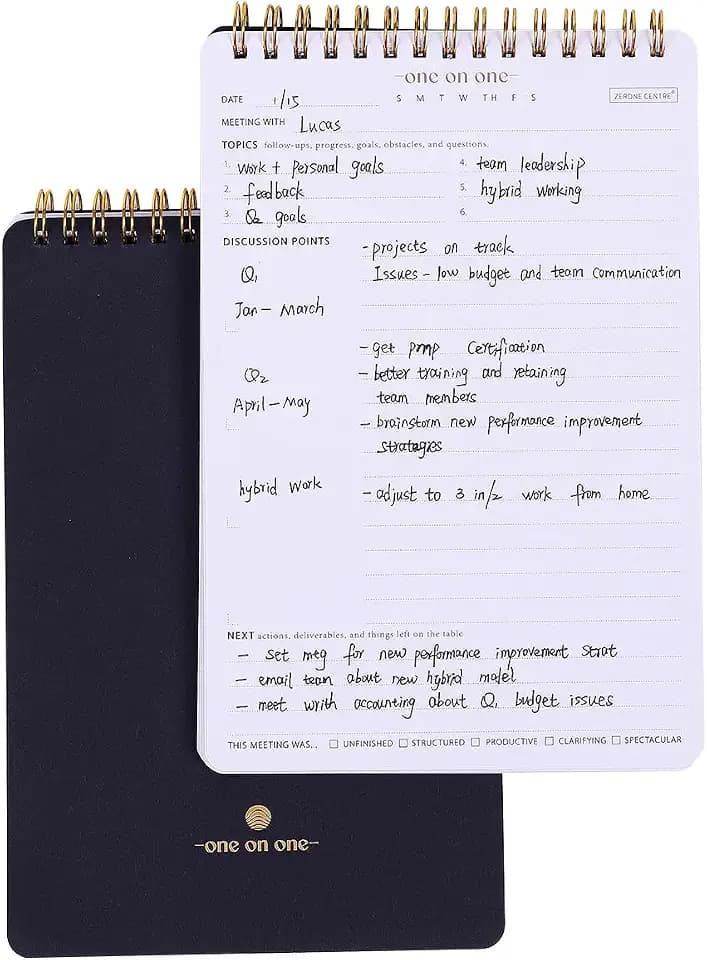 -one on one-
DATE 1/15 S M T W TH F S ZERONE CENTRE®
MEETING WITH Lucas
TOPICS follow-ups, progress, goals, obstacles, and questions.
1. work + personal goals 4. team leadership
2. feedback 5. hybrid working
3. Q2 goals 6.
DISCUSSION POINTS - projects on track
Q1 Issues - low budget and team communication
Jan - March
- get pmp Certification
Q2 - better training and retaining
April - May team members
- brainstorm new performance improvement
stratagies
hybrid work - adjust to 3 in/2 work from home
NEXT actions, deliverables, and things left on the table
- set mtg for new performance improvement strat
- email team about new hybrid model
- meet writh accounting about Q1 budget issues
THIS MEETING WAS.. ☐ UNFINISHED ☐ STRUCTURED ☐ PRODUCTIVE ☐ CLARIFYING ☐ SPECTACULAR
-one on one-